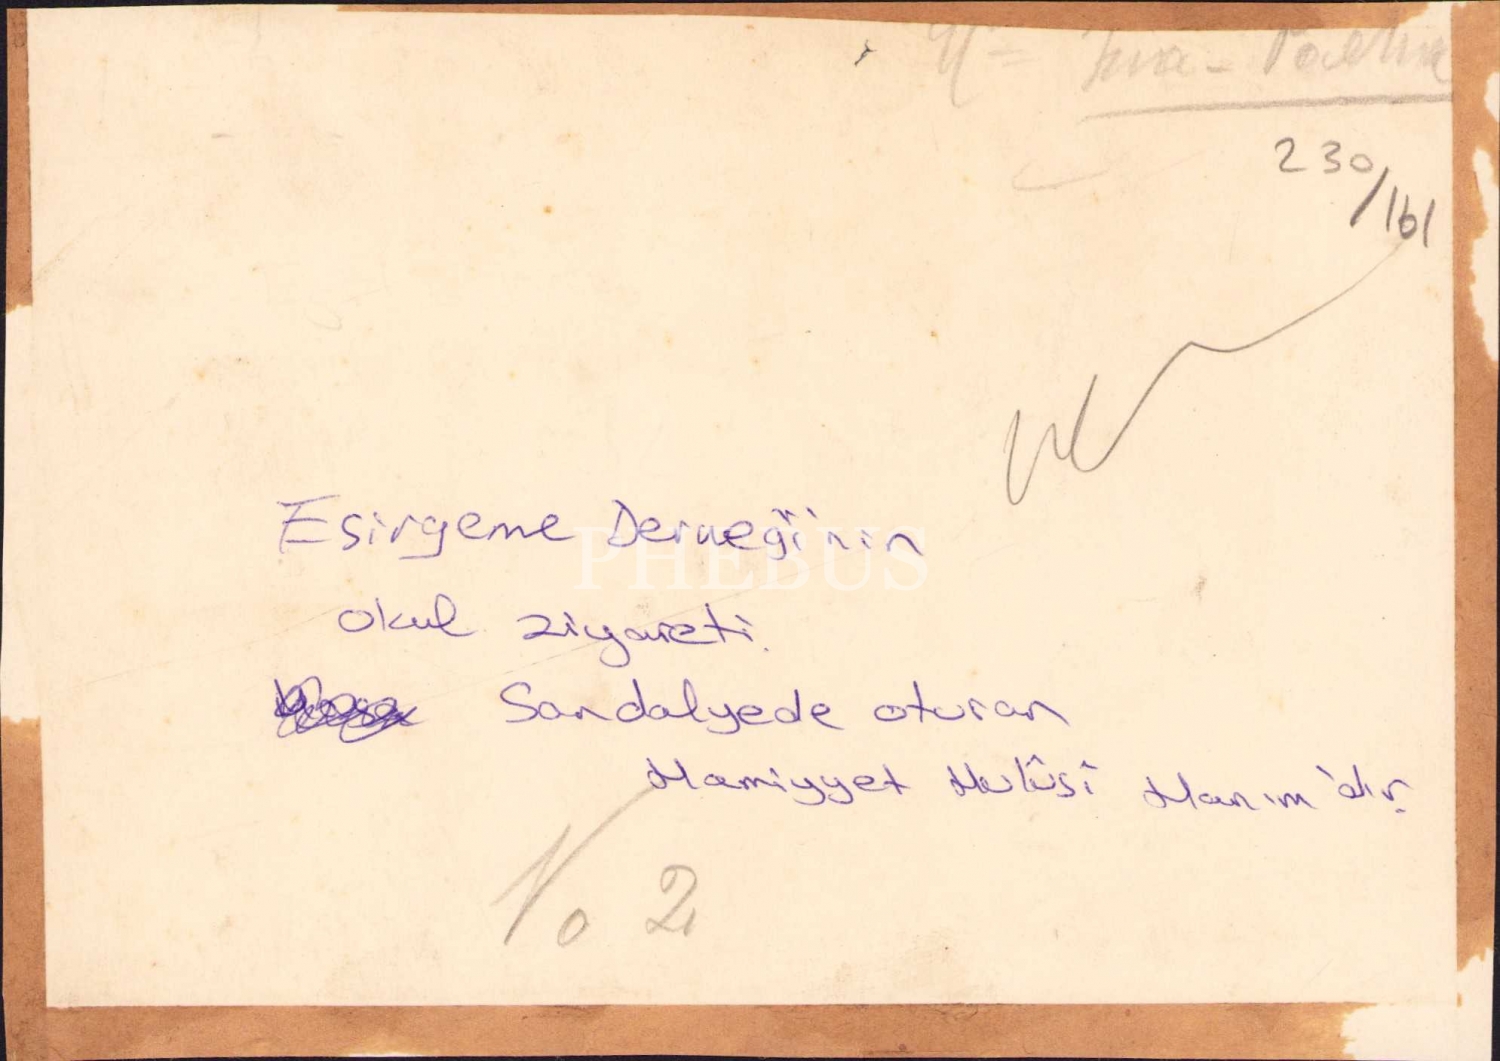 230/161
Esirgeme Derneği'nin
okul ziyareti.
Sandalyede oturan
Hamiyyet Hulûsî Hanım'dır.
No 2
PHEBUS